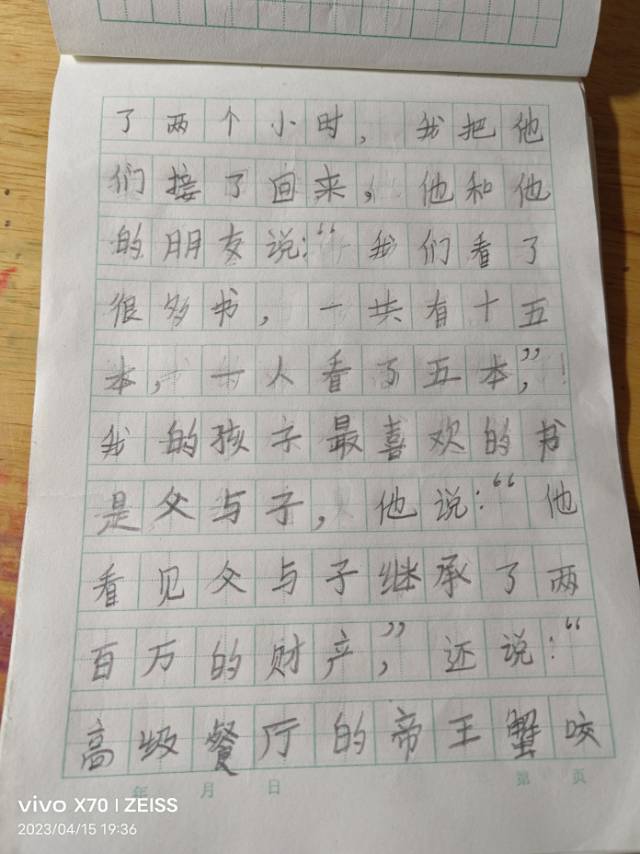 了两个小时，我把他
们接了回来，他和他
的朋友说：“我们看了
很多书，一共有十五
本，一人看了五本，”
我的孩子最喜欢的书
是父与子，他说：“他
看见父与子继承了两
百万的财产，”还说：“
高级餐厅的帝王蟹咬
年 月 日 第 页
vivo X70 | ZEISS
2023/04/15 19:36